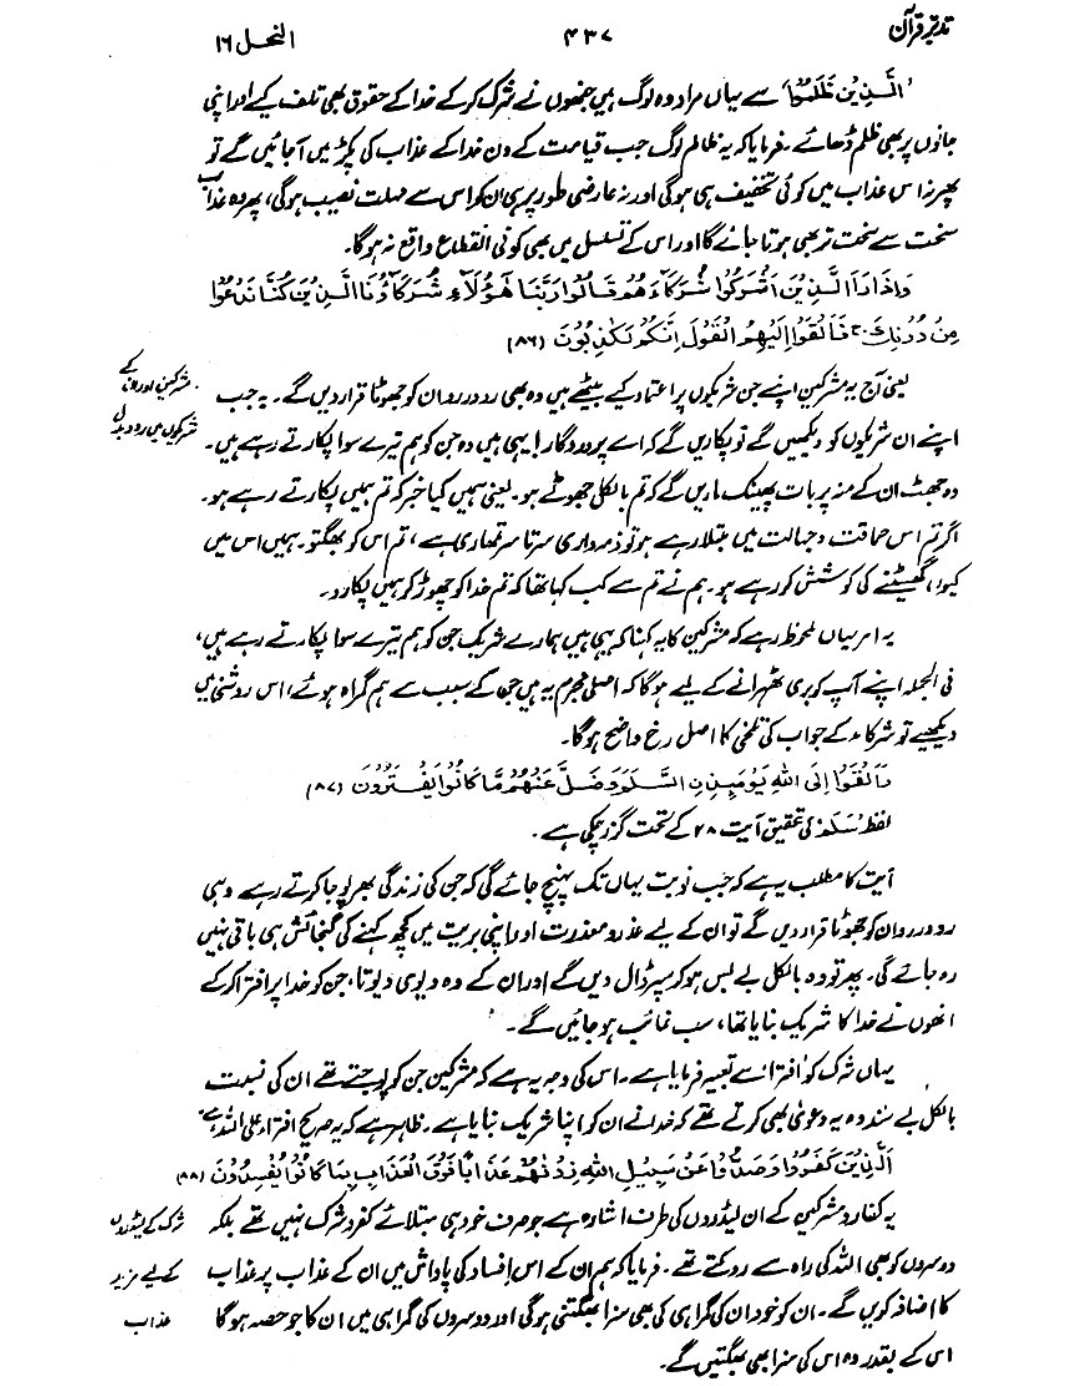 تدبر قرآن
۴۳۷
النحل ۱۶
'الَّذِيْنَ ظَلَمُوْا' سے یہاں مراد وہ لوگ ہیں جنھوں نے شرک کر کے خدا کے حقوق بھی تلف کیے اور اپنی
جانوں پر بھی ظلم ڈھائے۔ فرمایا کہ یہ ظالم لوگ جب قیامت کے دن خدا کے عذاب کی پکڑ میں آجائیں گے تو
پھر نہ اس عذاب میں کوئی تخفیف ہی ہوگی اور نہ عارضی طور پر ہی ان کو اس سے مہلت نصیب ہوگی، پھر وہ عذاب
سخت سے سخت تر بھی ہوتا جائے گا اور اس کے تسلسل میں بھی کوئی انقطاع واقع نہ ہوگا۔
وَاِذَا رَاَ الَّذِيْنَ اَشْرَكُوْا شُرَكَآءَهُمْ قَالُوْا رَبَّنَا هٰٓؤُلَآءِ شُرَكَآؤُنَا الَّذِيْنَ كُنَّا نَدْعُوْا
مِنْ دُوْنِكَ ۚ فَاَلْقَوْا اِلَيْهِمُ الْقَوْلَ اِنَّكُمْ لَكٰذِبُوْنَ (۸۶)
مشرکین اور ان کے
شریکوں میں رد و بدل
یعنی آج یہ مشرکین اپنے جن شریکوں پر اعتماد کیے بیٹھے ہیں وہ بھی رو در رو ان کو جھوٹا قرار دیں گے۔ یہ جب
اپنے ان شریکوں کو دیکھیں گے تو پکاریں گے کہ اے پروردگار! یہی ہیں وہ جن کو ہم تیرے سوا پکارتے رہے ہیں۔
وہ جھٹ ان کے منہ پر بات پھینک ماریں گے کہ تم بالکل جھوٹے ہو۔ یعنی ہمیں کیا خبر کہ تم ہمیں پکارتے رہے ہو۔
اگر تم اس حماقت و جہالت میں مبتلا رہے ہو تو ذمہ داری سرتا سر تمھاری ہے، تم اس کو بھگتو۔ ہمیں اس میں
کیوں گھسیٹنے کی کوشش کر رہے ہو۔ ہم نے تم سے کب کہا تھا کہ تم خدا کو چھوڑ کر ہمیں پکارو۔
یہ امر یہاں ملحوظ رہے کہ مشرکین کا یہ کہنا کہ یہی ہیں ہمارے شریک جن کو ہم تیرے سوا پکارتے رہے ہیں،
فی الجملہ اپنے آپ کو بری ٹھہرانے کے لیے ہوگا کہ اصلی مجرم یہ ہیں جن کے سبب سے ہم گمراہ ہوئے، اس روشنی میں
دیکھیے تو شرکاء کے جواب کی تلخی کا اصل رخ واضح ہوگا۔
وَاَلْقَوْا اِلَى اللّٰهِ يَوْمَئِذِنِ السَّلَمَ وَضَلَّ عَنْهُمْ مَّا كَانُوْا يَفْتَرُوْنَ (۸۷)
لفظ 'سَلَم' کی تحقیق آیت ۲۸ کے تحت گزر چکی ہے۔
آیت کا مطلب یہ ہے کہ جب نوبت یہاں تک پہنچ جائے گی کہ جن کی زندگی بھر پوجا کرتے رہے وہی
رو در رو ان کو جھوٹا قرار دیں گے تو ان کے لیے عذر و معذرت اور اپنی بریت میں کچھ کہنے کی گنجائش ہی باقی نہیں
رہ جائے گی۔ پھر تو وہ بالکل بے بس ہو کر سپر ڈال دیں گے اور ان کے وہ دیوی دیوتا، جن کو خدا پر افترا کر کے
انھوں نے خدا کا شریک بنایا تھا، سب غائب ہو جائیں گے۔
یہاں شرک کو 'افترا' سے تعبیر فرمایا ہے۔ اس کی وجہ یہ ہے کہ مشرکین جن کو پوجتے تھے ان کی نسبت
بالکل بے سند وہ یہ دعویٰ بھی کرتے تھے کہ خدا نے ان کو اپنا شریک بنایا ہے۔ ظاہر ہے کہ یہ صریح افتراء علی اللہ ہے۔
اَلَّذِيْنَ كَفَرُوْا وَصَدُّوْا عَنْ سَبِيْلِ اللّٰهِ زِدْنٰهُمْ عَذَابًا فَوْقَ الْعَذَابِ بِمَا كَانُوْا يُفْسِدُوْنَ (۸۸)
شرک کے لیڈروں
کے لیے مزید
عذاب
یہ کفار و مشرکین کے ان لیڈروں کی طرف اشارہ ہے جو صرف خود ہی مبتلائے کفر و شرک نہیں تھے بلکہ
دوسروں کو بھی اللہ کی راہ سے روکتے تھے۔ فرمایا کہ ہم ان کے اس افساد کی پاداش میں ان کے عذاب پر عذاب
کا اضافہ کریں گے۔ ان کو خود ان کی گمراہی کی بھی سزا بھگتنی ہوگی اور دوسروں کی گمراہی میں ان کا جو حصہ ہوگا
اس کے بقدر وہ اس کی سزا بھی بھگتیں گے۔